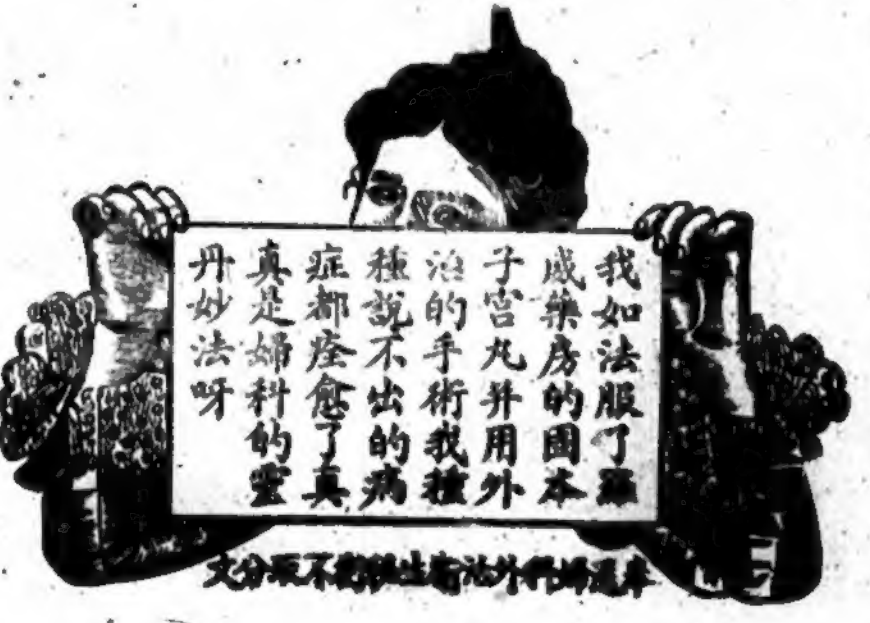 我如法服了羅
威藥房的固本
子宮丸并用外
治的手術我種
種說不出的病
症都痊愈了真
真是婦科的靈
丹妙法呀
奉送婦科外治衛生 不取分文